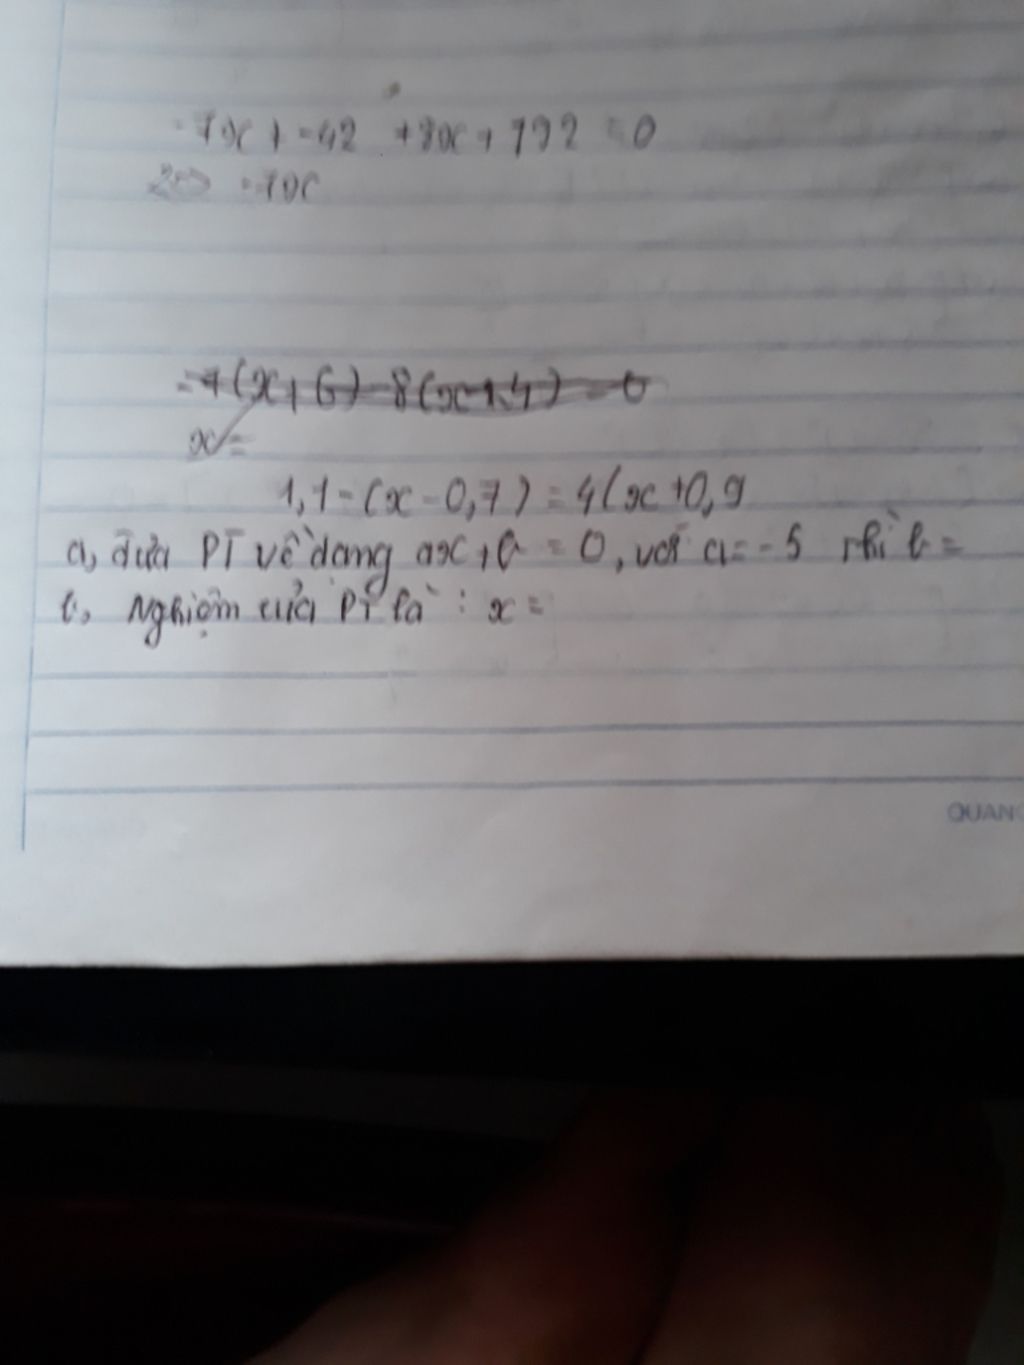 -7x+-42 +8x+192 =0
=7x
=7(x+6)-8(x+4)=0
x=
1,1-(x-0,7)=4(x+0,9
a, đưa PT về dạng ax+b=0, với a=-5 thì b=
b, Nghiệm của PT là: x=
QUANG